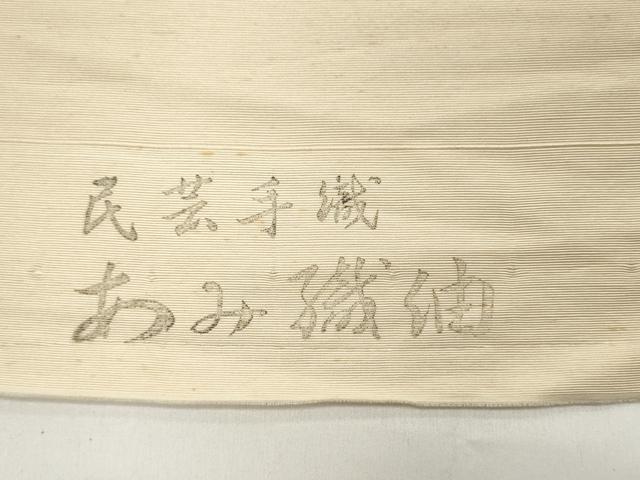 民芸手織
あみ織紬